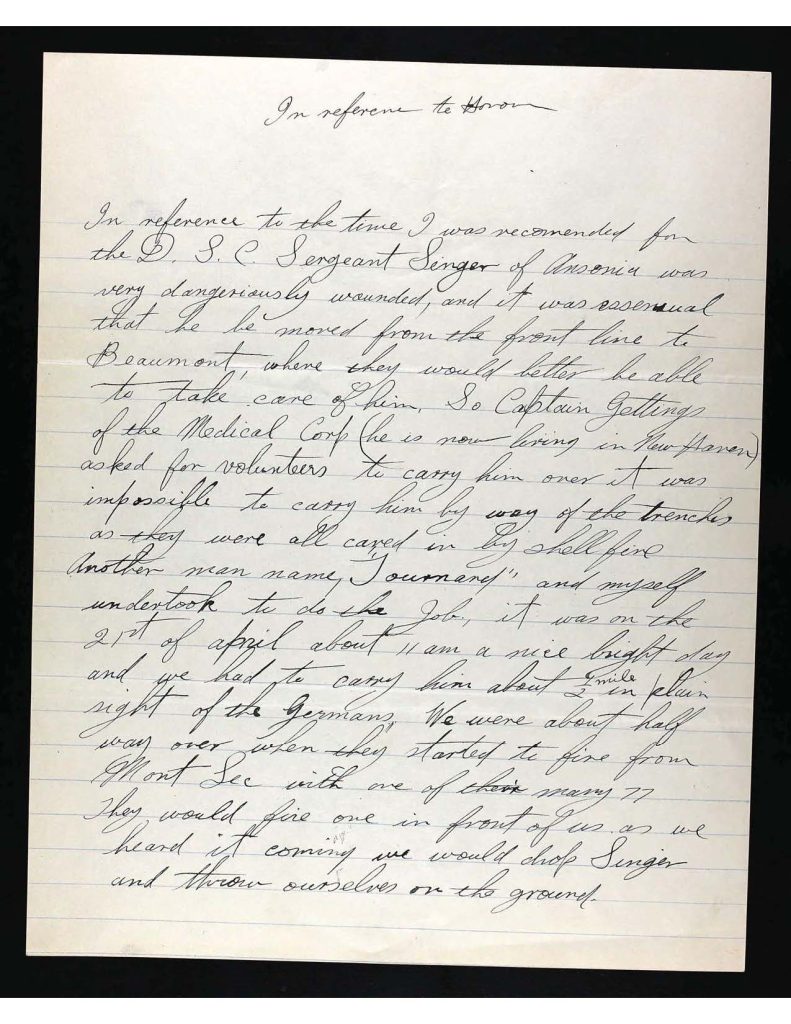 In reference to Honor
In reference to the time I was recomended for
the D. S. C. Sergeant Singer of Ansonia was
very dangeriously wounded, and it was essensual
that he be moved from the front line to
Beaumont, where they would better be able
to take care of him. So Captain Gettings
of the Medical Corp (he is now living in New Haven)
asked for volunteers to carry him over it was
impossible to carry him by way of the trenches
as they were all caved in by shell fire
Another man name, "Tournard" and myself
undertook to do the Job, it was on the
21st of april about 11 am a nice bright day
and we had to carry him about ½ mile in plain
sight of the Germans. We were about half
way over when they started to fire from
Mont Sec with one of their many 77
They would fire one in front of us. as we
heard it coming we would drop Singer
and throw ourselves on the ground.